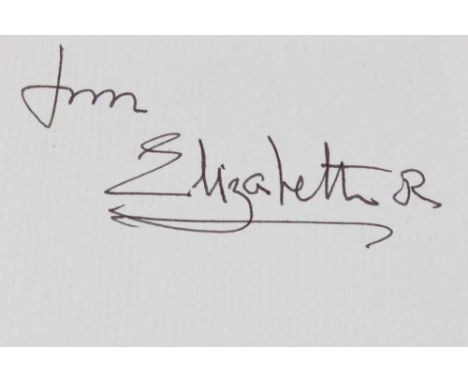 from
Elizabeth R